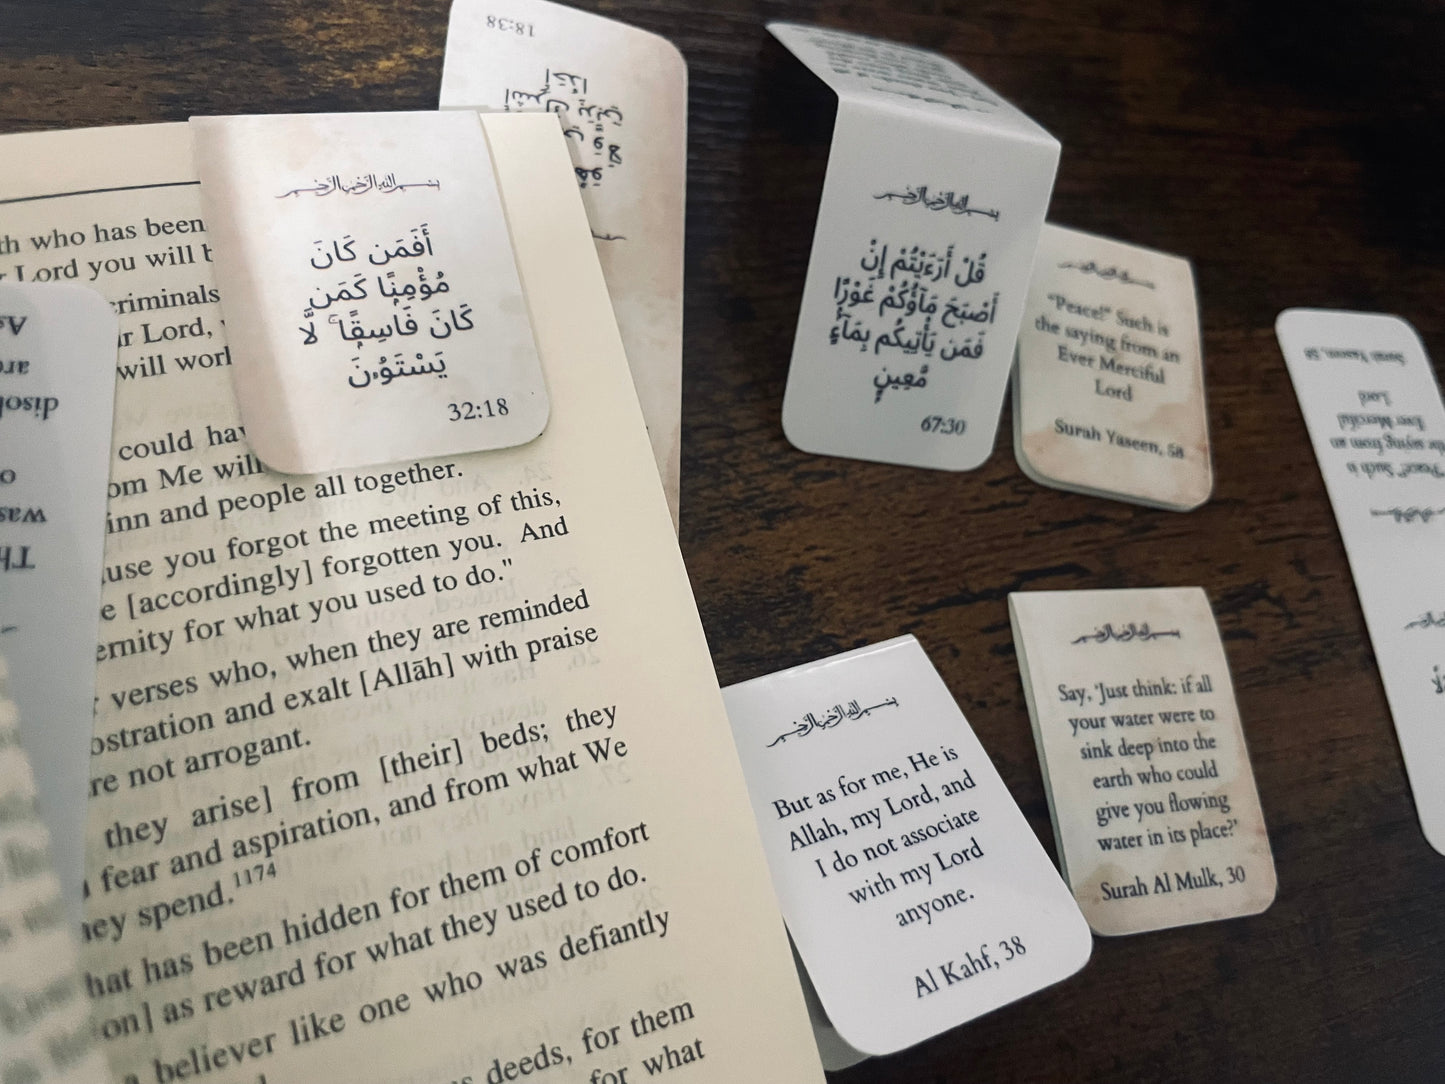 18:38
بسم الله الرحمن الرحيم
أَفَمَن كَانَ
مُؤْمِنًا كَمَن
كَانَ فَاسِقًا ۚ لَّا
يَسْتَوُۥنَ
32:18
th who has been
r Lord you will b
criminals
ur Lord,
will worl
could hav
om Me will
inn and people all together.
use you forgot the meeting of this,
e [accordingly] forgotten you. And
ernity for what you used to do."
r verses who, when they are reminded
ostration and exalt [Allāh] with praise
re not arrogant.
they arise] from [their] beds; they
n fear and aspiration, and from what We
hey spend.1174
hat has been hidden for them of comfort
on] as reward for what they used to do.
a believer like one who was defiantly
deeds, for them
for what
As
are
disol
o
was
Th
بسم الله الرحمن الرحيم
قُلْ أَرَءَيْتُمْ إِنْ
أَصْبَحَ مَآؤُكُمْ غَوْرًا
فَمَن يَأْتِيكُم بِمَآءٍ
مَّعِينٍۭ
67:30
بسم الله الرحمن الرحيم
"Peace!" Such is
the saying from an
Ever Merciful
Lord
Surah Yaseen, 58
بسم الله الرحمن الرحيم
"Peace!" Such is
the saying from an
Ever Merciful
Lord
Surah Yaseen, 58
بسم الله الرحمن الرحيم
But as for me, He is
Allah, my Lord, and
I do not associate
with my Lord
anyone.
Al Kahf, 38
بسم الله الرحمن الرحيم
Say, 'Just think: if all
your water were to
sink deep into the
earth who could
give you flowing
water in its place?'
Surah Al Mulk, 30